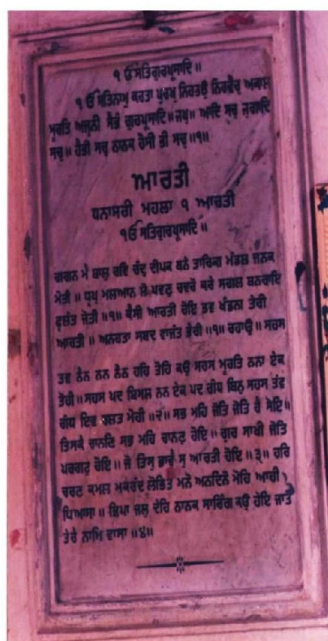 ੧ ੴ ਸਤਿਗੁਰਪ੍ਰਸਾਦਿ ॥
੧ ੴ ਸਤਿਨਾਮੁ ਕਰਤਾ ਪੁਰਖੁ ਨਿਰਭਉ ਨਿਰਵੈਰੁ ਅਕਾਲ
ਮੂਰਤਿ ਅਜੂਨੀ ਸੈਭੰ ਗੁਰਪ੍ਰਸਾਦਿ ॥ ਜਪੁ ॥ ਆਦਿ ਸਚੁ ਜੁਗਾਦਿ
ਸਚੁ ॥ ਹੈਭੀ ਸਚੁ ਨਾਨਕ ਹੋਸੀ ਭੀ ਸਚੁ ॥੧॥
ਆਰਤੀ
ਧਨਾਸਰੀ ਮਹਲਾ ੧ ਆਰਤੀ
੧ੳ ਸਤਿਗੁਰਪ੍ਰਸਾਦਿ ॥
ਗਗਨ ਮੈ ਥਾਲੁ ਰਵਿ ਚੰਦੁ ਦੀਪਕ ਬਨੇ ਤਾਰਿਕਾ ਮੰਡਲ ਜਨਕ
ਮੋਤੀ ॥ ਧੂਪੁ ਮਲਆਨ ਲੋ ਪਵਣੁ ਚਵਰੋ ਕਰੇ ਸਗਲ ਬਨਰਾਇ
ਫੂਲੰਤ ਜੋਤੀ ॥੧॥ ਕੈਸੀ ਆਰਤੀ ਹੋਇ ਭਵ ਖੰਡਨਾ ਤੇਰੀ
ਆਰਤੀ ॥ ਅਨਹਤਾ ਸਬਦ ਵਾਜੰਤ ਭੇਰੀ ॥੧॥ ਰਹਾਉ ॥ ਸਹਸ
ਤਵ ਨੈਨ ਨਨ ਨੈਨ ਹਹਿ ਤੋਹਿ ਕਉ ਸਹਸ ਮੂਰਤਿ ਨਨਾ ਏਕ
ਤੋਹੀ ॥ ਸਹਸ ਪਦ ਬਿਮਲ ਨਨ ਏਕ ਪਦ ਗੰਧ ਬਿਨੁ ਸਹਸ ਤਵ
ਗੰਧ ਇਵ ਚਲਤ ਮੋਹੀ ॥੨॥ ਸਭ ਮਹਿ ਜੋਤਿ ਜੋਤਿ ਹੈ ਸੋਇ ॥
ਤਿਸਕੈ ਚਾਨਣਿ ਸਭ ਮਹਿ ਚਾਨਣੁ ਹੋਇ ॥ ਗੁਰ ਸਾਖੀ ਜੋਤਿ
ਪਰਗਟੁ ਹੋਇ ॥ ਜੋ ਤਿਸੁ ਭਾਵੈ ਸੁ ਆਰਤੀ ਹੋਇ ॥੩॥ ਹਰਿ
ਚਰਣ ਕਮਲ ਮਕਰੰਦ ਲੋਭਿਤ ਮਨੋ ਅਨਦਿਨੋ ਮੋਹਿ ਆਹੀ
ਪਿਆਸਾ ॥ ਕ੍ਰਿਪਾ ਜਲੁ ਦੇਹਿ ਨਾਨਕ ਸਾਰਿੰਗ ਕਉ ਹੋਇ ਜਾਤੇ
ਤੇਰੈ ਨਾਮਿ ਵਾਸਾ ॥੪॥